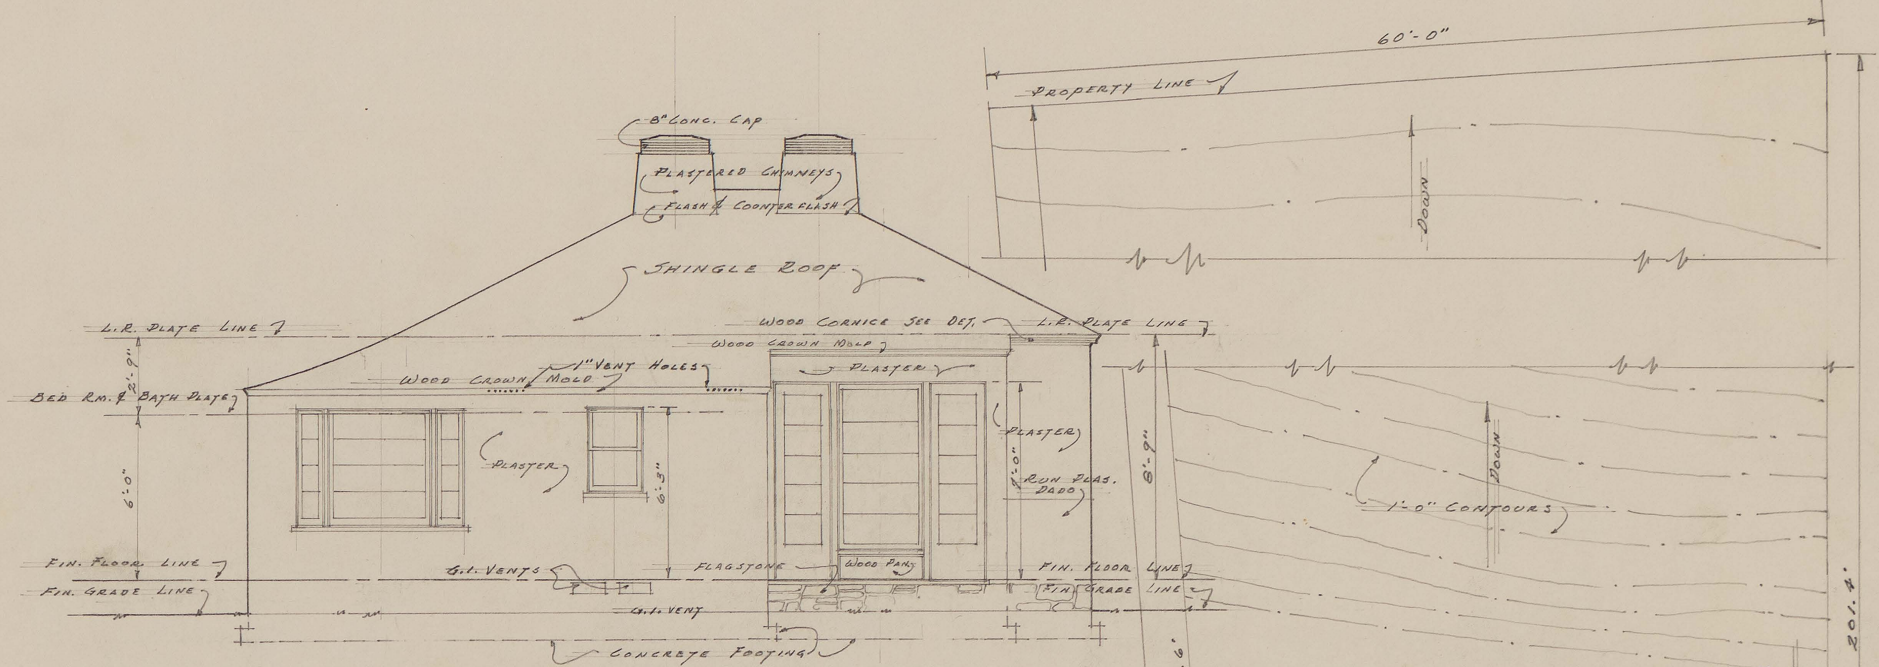 60'-0"
PROPERTY LINE
8" CONC. CAP
PLASTERED CHIMNEYS
FLASH & COUNTERFLASH
DOWN
SHINGLE ROOF
L.R. PLATE LINE
WOOD CORNICE SEE DET.
L.R. PLATE LINE
WOOD CROWN MOLD
2'-9"
1" VENT HOLES
PLASTER
WOOD CROWN MOLD
BED RM. & BATH PLATE
PLASTER
DOWN
8'-9"
PLASTER
6'-0"
6'-3"
RUN PLAS.
DADO
1'-0" CONTOURS
FIN. FLOOR LINE
G.I. VENTS
FLAGSTONE
WOOD PANL
FIN. FLOOR LINE
FIN. GRADE LINE
FIN. GRADE LINE
G.I. VENT
201.4'
CONCRETE FOOTING